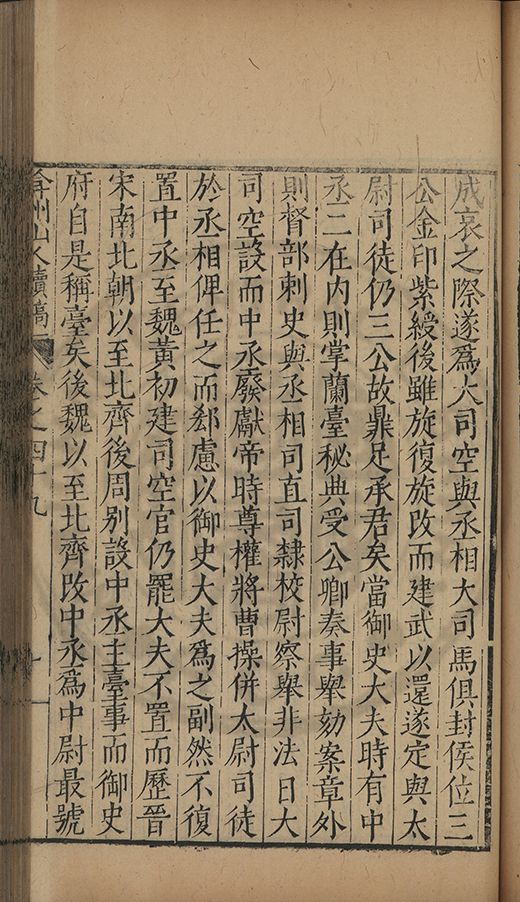 成哀之際遂爲大司空與丞相大司馬俱封侯位三
公金印紫綬後雖旋復旋改而建武以還遂定與太
尉司徒仍三公故鼎足承君矣當御史大夫時有中
丞二在内則掌蘭臺秘典受公卿奏事舉劾案章外
則督部刺史與丞相司直司隸校尉察舉非法日大
司空設而中丞廢獻帝時尊權將曹操併太尉司徒
於丞相俾任之而郄慮以御史大夫爲之副然不復
置中丞至魏黃初建司空官仍罷大夫不置而歷晉
宋南北朝以至北齊後周别設中丞主臺事而御史
府自是稱臺矣後魏以至北齊改中丞爲中尉最號
弇州山人續稿 卷之四十九